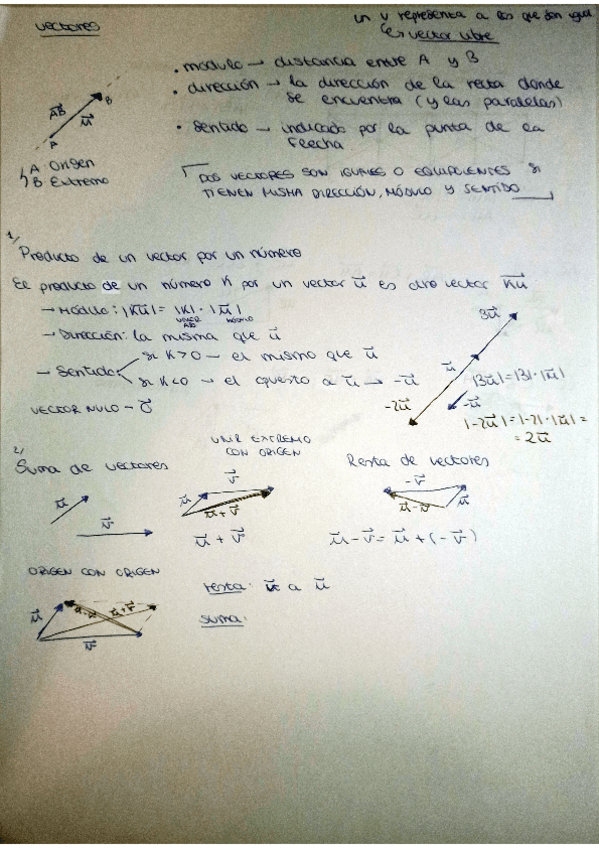 vectores
un v representa a los que son igual
↳ vector libre
• módulo → distancia entre A y B
• dirección → la dirección de la recta donde
se encuentra (y las paralelas)
• sentido → indicado por la punta de la
flecha
AB
u⃗
A
B
A Origen
B Extremo
DOS VECTORES SON IGUALES O EQUIPOLENTES si
TIENEN MISMA DIRECCIÓN, MÓDULO Y SENTIDO
1/
Producto de un vector por un número
El producto de un número K por un vector u⃗ es otro vector Ku⃗
→ Módulo: |Ku⃗| = |K| · |u⃗|
VALOR ABS
MÓDULO
→ Dirección: la misma que u⃗
→ Sentido
si K>0 → el mismo que u⃗
si K<0 → el opuesto a u⃗ → -u⃗
VECTOR NULO → 0⃗
3u⃗
u⃗
|3u⃗| = |3| · |u⃗|
-u⃗
-2u⃗
|-2u⃗| = |-2| · |u⃗| =
= 2u⃗
2/
Suma de vectores
UNIR EXTREMO
CON ORIGEN
Resta de vectores
u⃗
v⃗
u⃗
v⃗
u⃗+v⃗
u⃗ + v⃗
-v⃗
u⃗-v⃗
u⃗
u⃗ - v⃗ = u⃗ + (-v⃗)
ORIGEN CON ORIGEN
u⃗
u⃗-v⃗
u⃗+v⃗
v⃗
resta: a u⃗
suma: